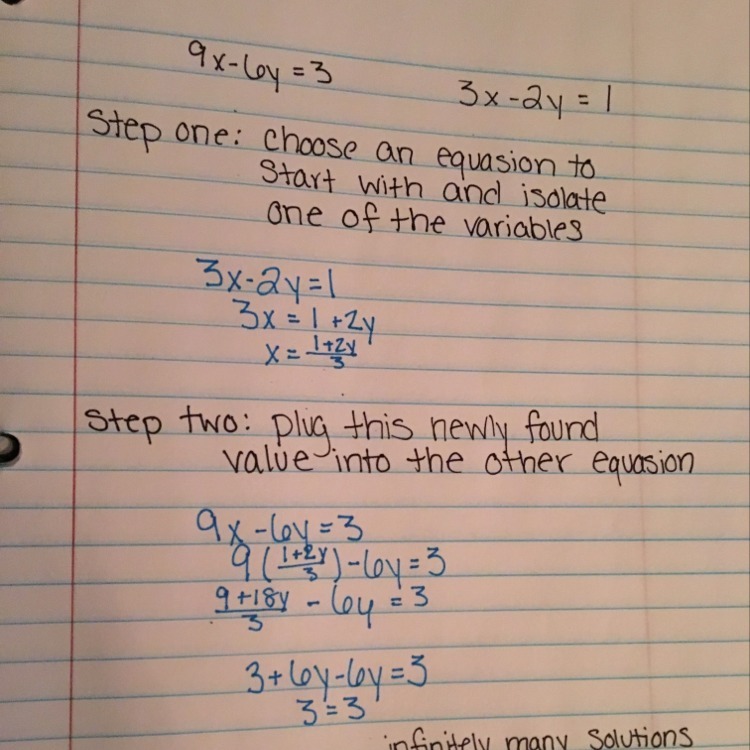 9x-6y=3
3x-2y=1
Step one: choose an equasion to
start with and isolate
one of the variables
3x-2y=1
3x=1+2y
x=\frac{1+2y}{3}
Step two: plug this newly found
value into the other equasion
9x-6y=3
9(\frac{1+2y}{3})-6y=3
\frac{9+18y}{3}-6y=3
3+6y-6y=3
3=3
infinitely many solutions